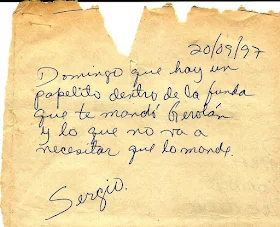 20/09/97
Domingo que hay un
papelito dentro de la funda
que te mandó
y lo que no va a
necesitar que lo mande.
Sergio.